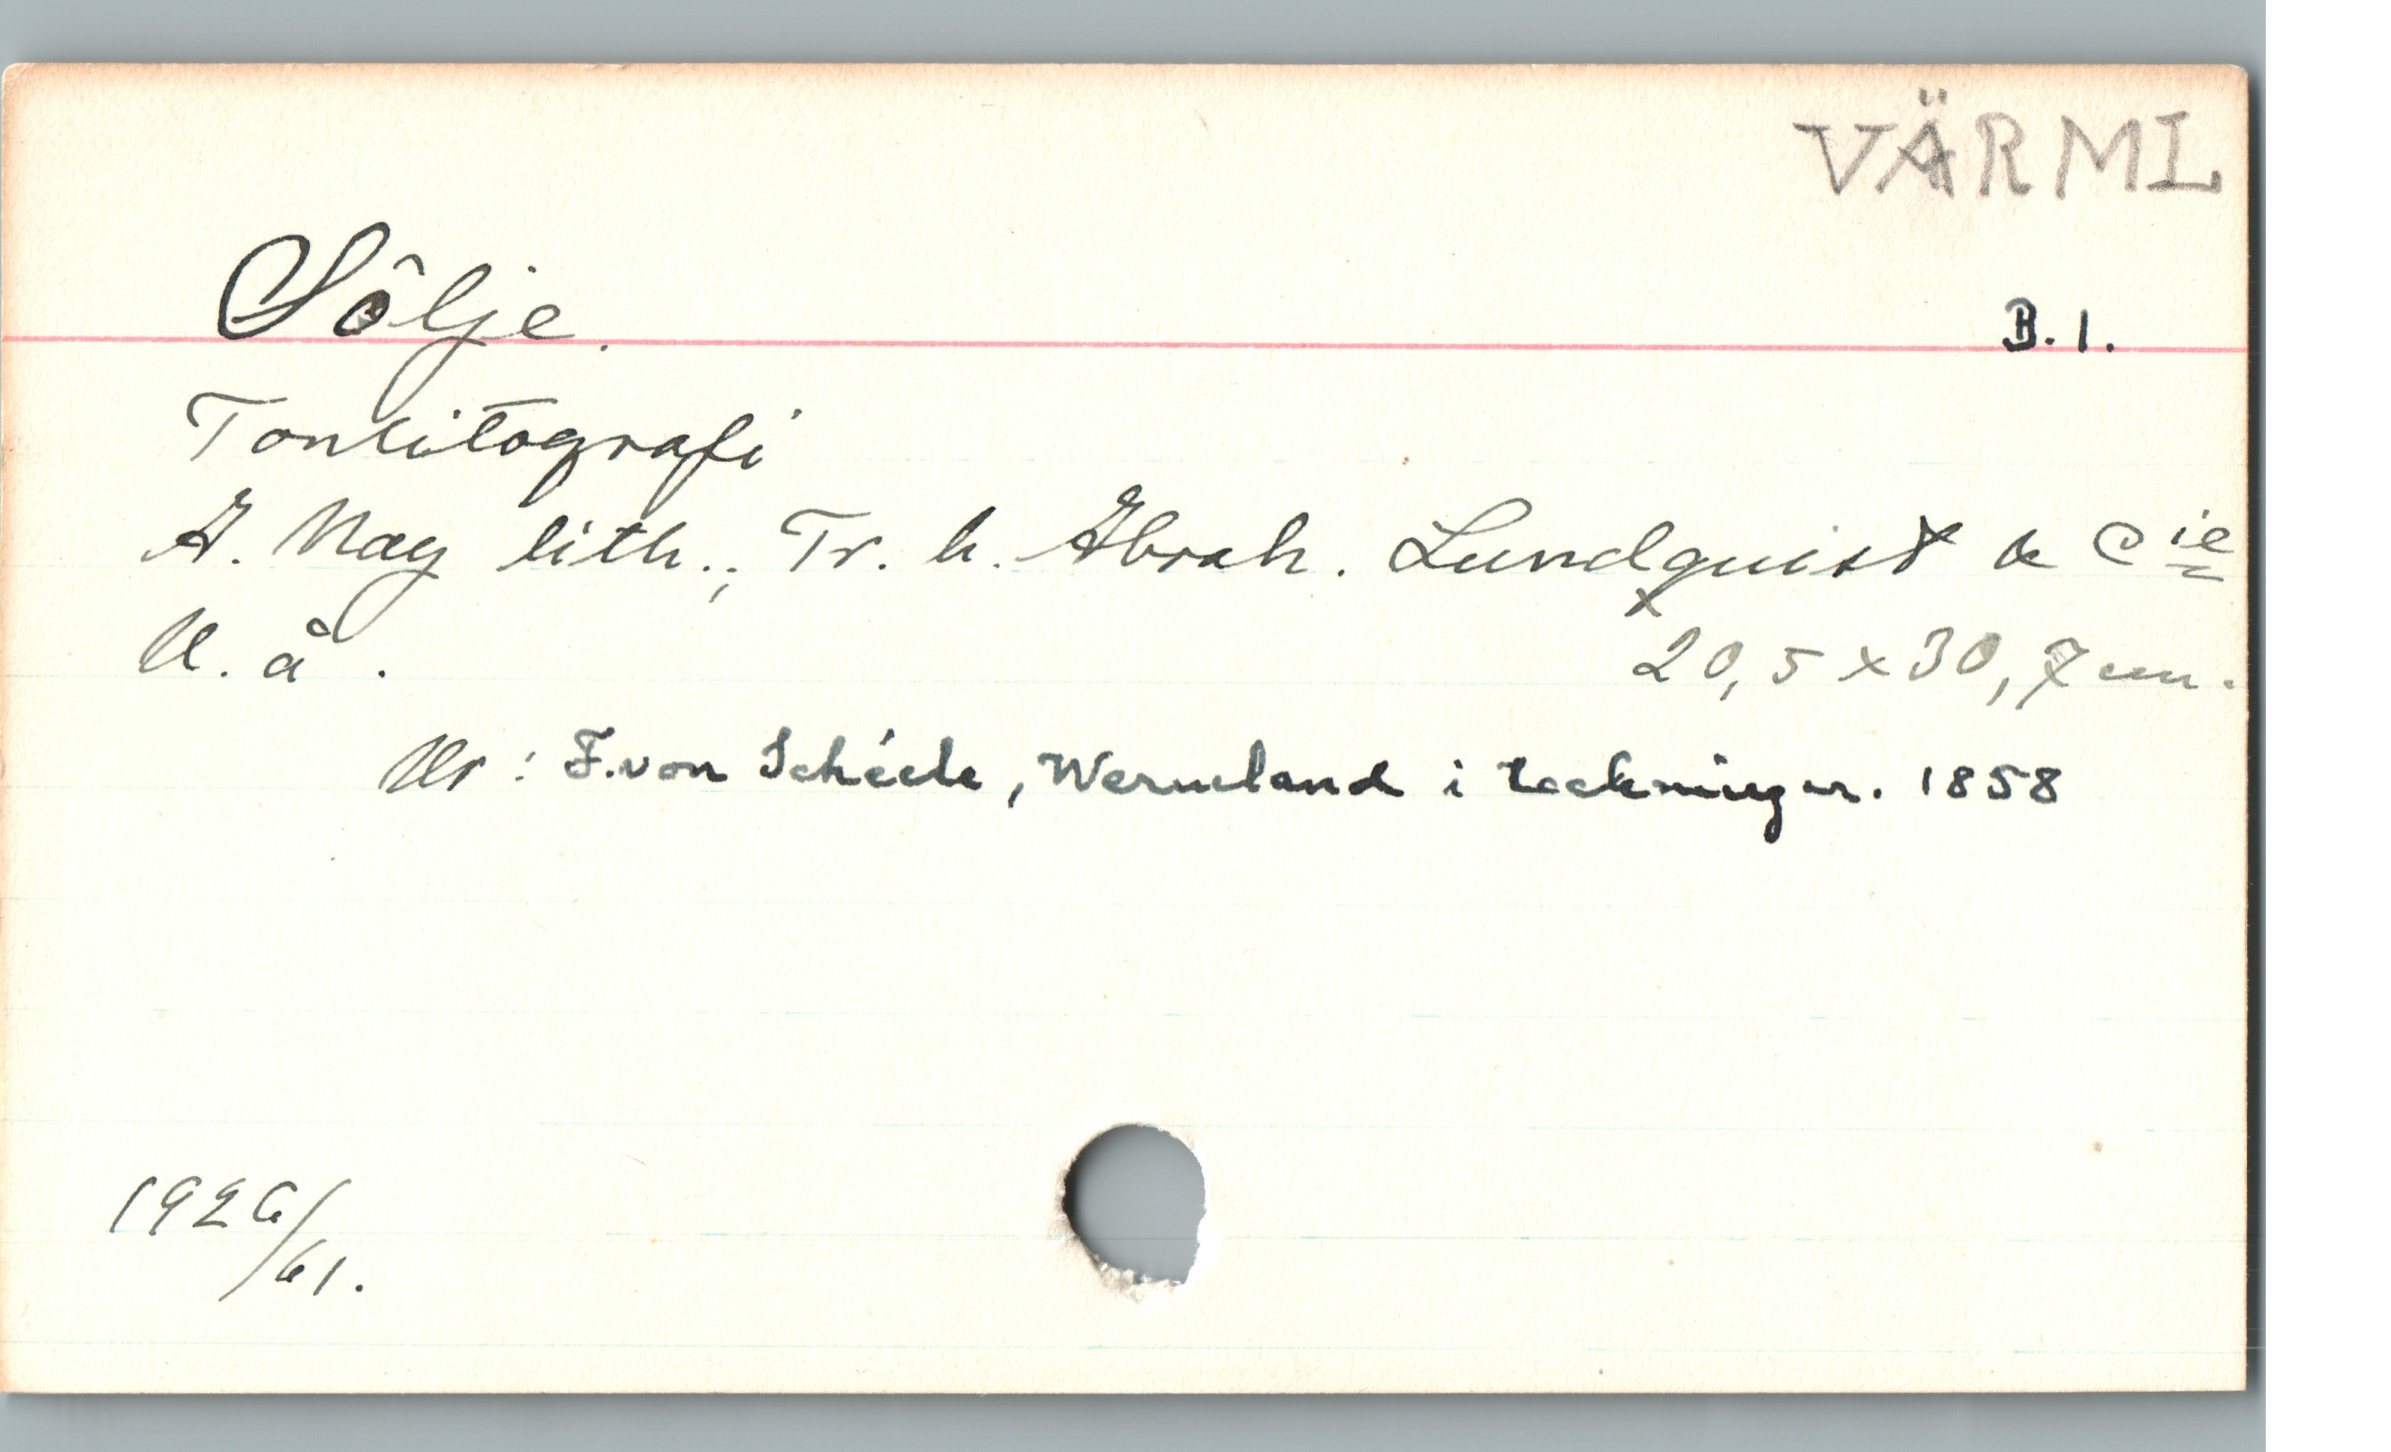 VÄRML
Sölje. B. 1.
Tonlitografi
A. Nay lith.; Tr. h. Abrah. Lundquist & Cie
U. å. 20,5 x 30,7 cm.
Ur: F. von Schéele, Wermeland i teckningar. 1858
1926/
61.